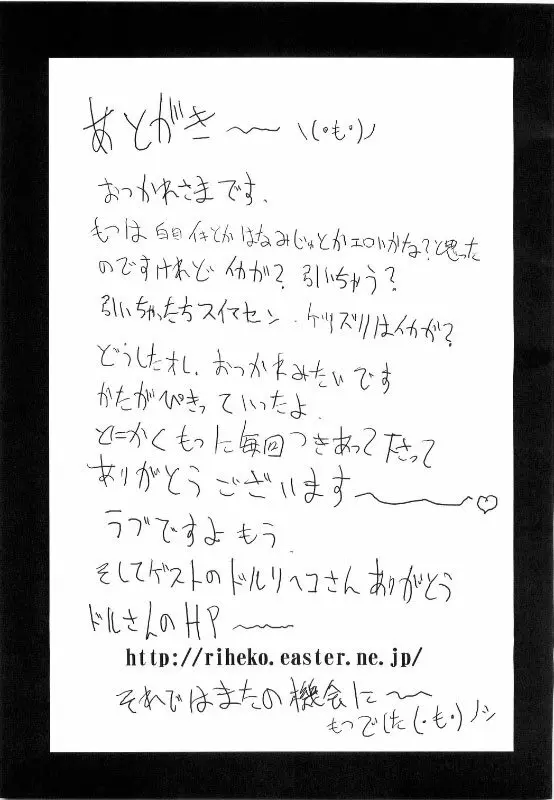 あとがき〜〜 \(・も・)ノ
おつかれさまです、
もつは白目イキとかはなみじゅとかエロいかな?と思った
のですけれどイカが?引いちゃう?
引いちゃったらスイマセン、ケツズリはイカが?
どうしたオレ、おつかれみたいです
かたがぴきっていったよ、
とにかくもつに毎回つきあって下さって
ありがとうございます〜〜♡
ラブですよもう、
そしてゲストのドルリヘコさんありがとう
ドルさんのHP〜〜
http://riheko.easter.ne.jp/
それではまたの機会に〜〜
もつでした(・も・)ノシ